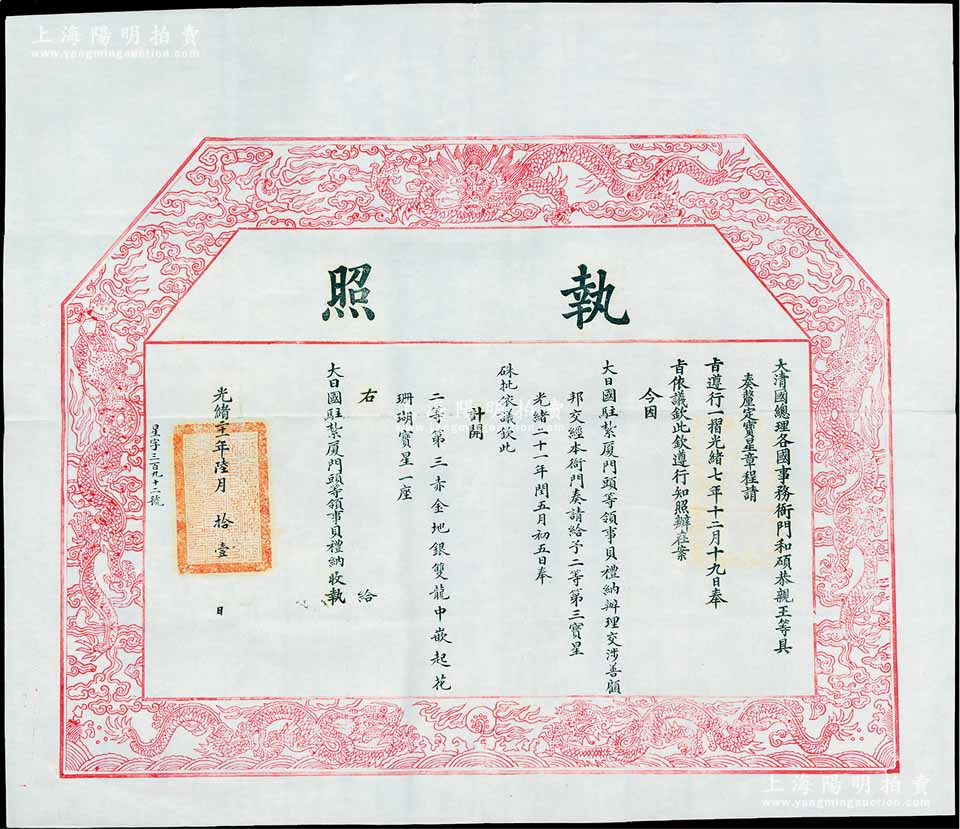 上海陽明拍賣
www.yangmingauction.com
執照
大清國總理各國事務衙門和碩恭親王等具
奏釐定寶星章程請
旨遵行一摺光緒七年十二月十九日奉
旨依議欽此欽遵行知照辦在案
今因
大日國駐紮厦門頭等領事貝禮納辦理交涉善顧
邦交經本衙門奏請給予二等第三寶星
光緒二十一年閏五月初五日奉
硃批依議欽此
計開
二等第三赤金地銀雙龍中嵌起花
珊瑚寶星一座
右給
大日國駐紮厦門頭等領事貝禮納收執
光緒二十一年陸月拾壹日
星字三百九十二號
上海陽明拍賣
www.yangmingauction.com